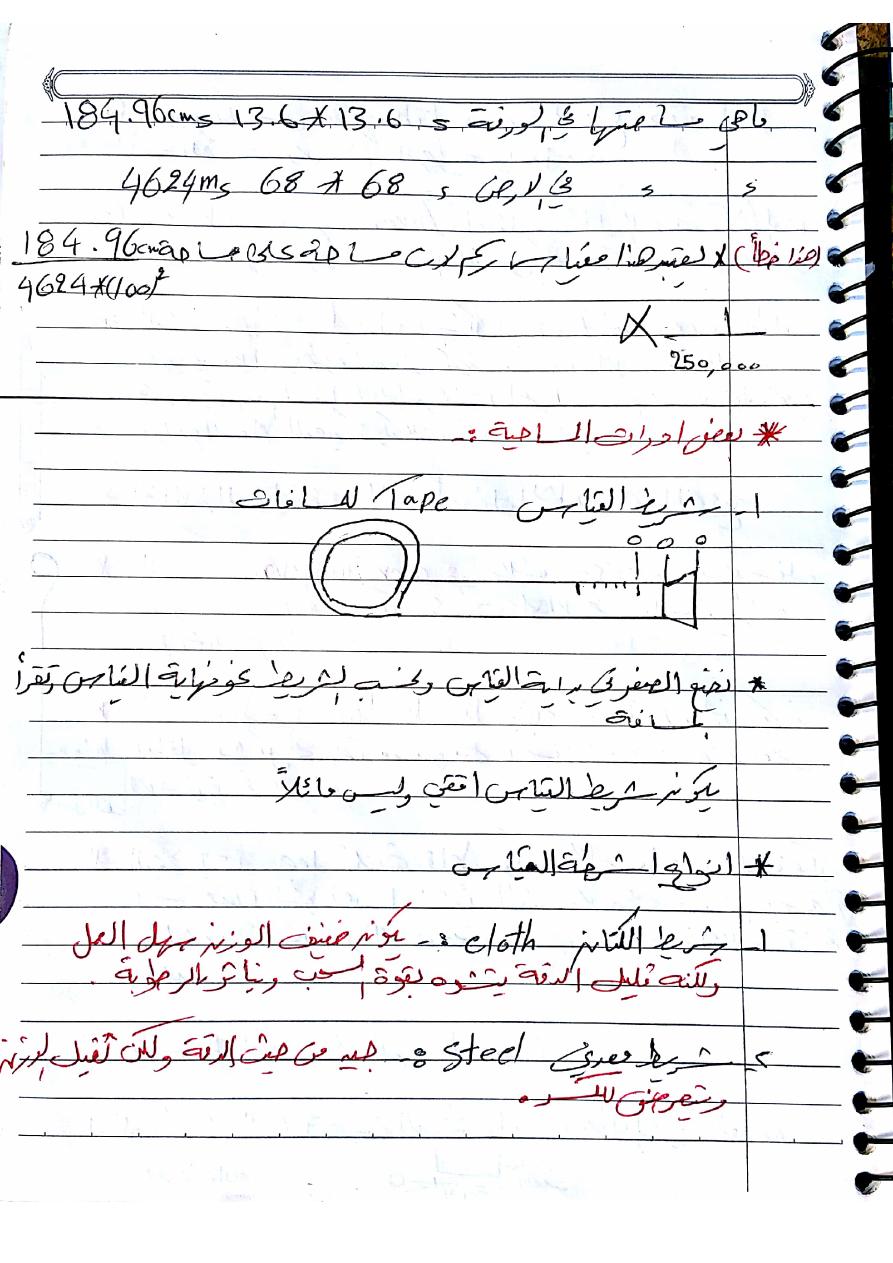 ماهي مساحتها في الورقة s 13.6 * 13.6 184.96cms
s s في الارض s 68 * 68 4624ms
(هذا خطأ) لا يعتبر هذا مقياس رسم لان مساحة على مساحة 184.96cm
4624*(100)²
1
X
250,000
* بعض ادوات المساحية :-
1- شريط القياس Tape للمسافات
* نضع الصفر في بداية القياس ونحسب الشريط نحو نهاية القياس ونقرأ
المسافة
يكون شريط القياس افقي وليس مائلاً
* انواع اشرطة القياس
1- شريط الكتان cloth :- يكون خفيف الوزن سهل الحمل
ولكنه قليل الدقة يتشوه بقوة السحب ويتأثر بالرطوبة .
2- شريط معدني Steel :- جيد من حيث الدقة ولكن ثقيل الوزن
ويتعرض للكسر .